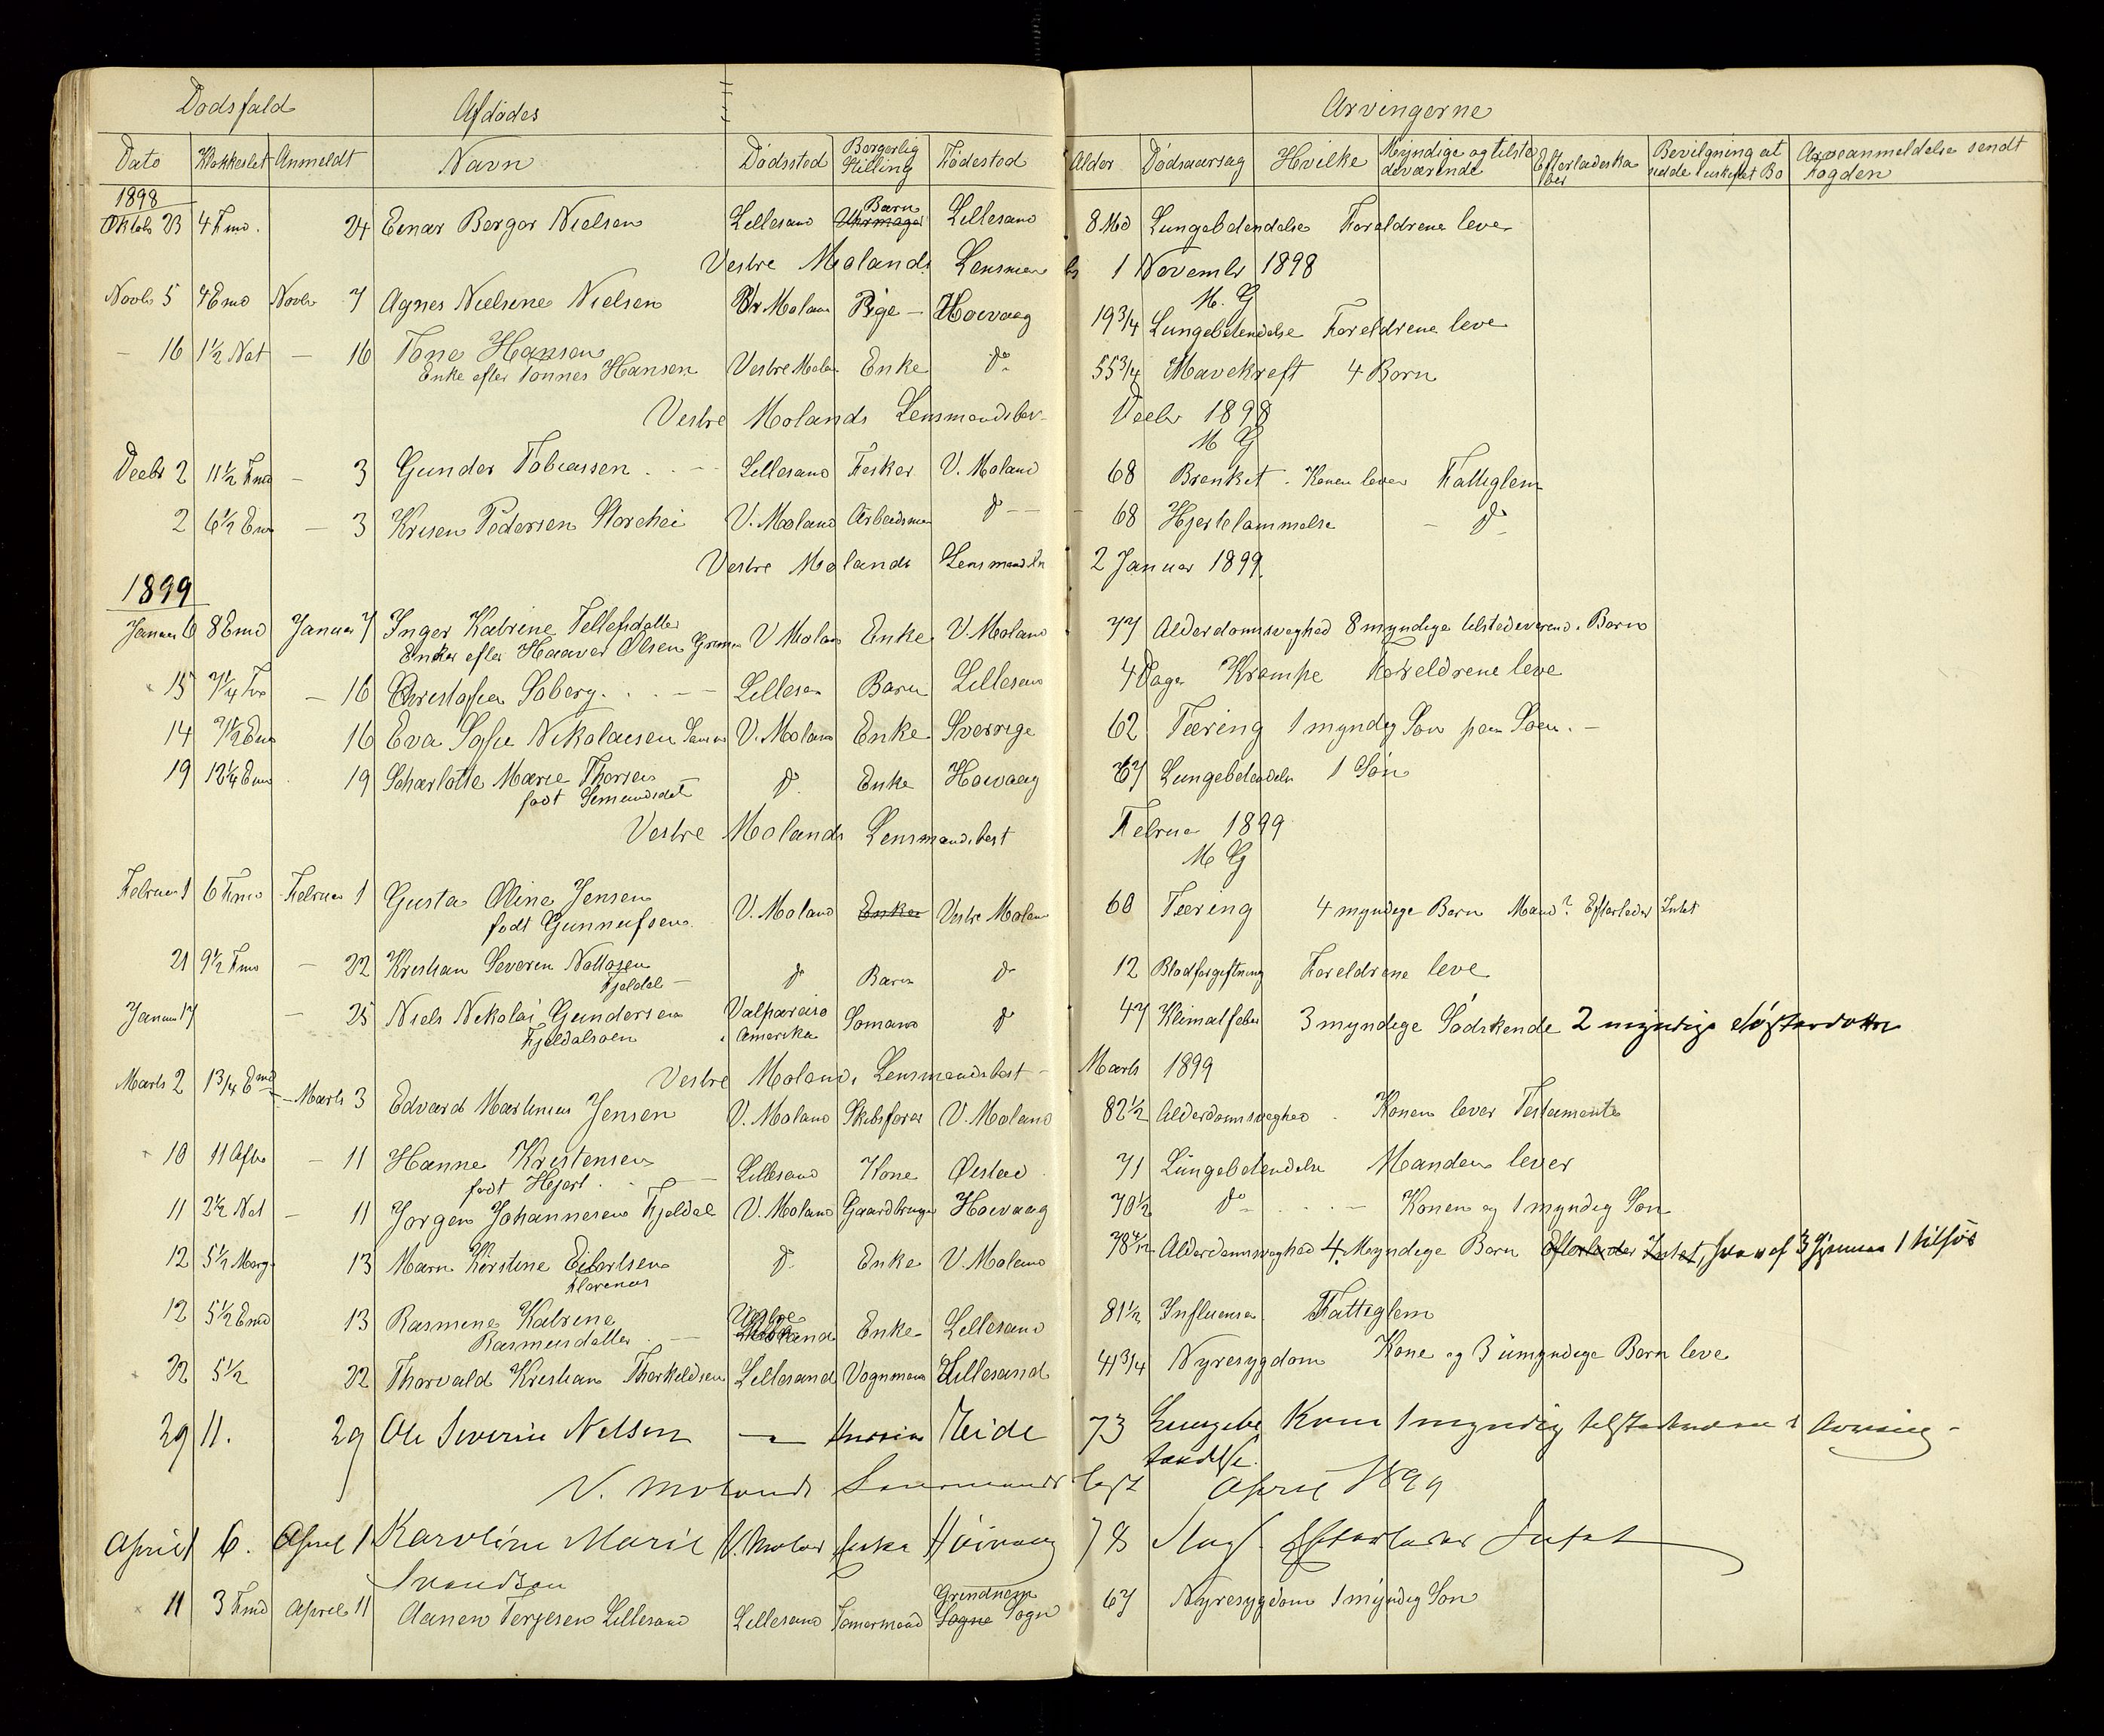 Dodsfald Afdödes Arvingerne
Dato Klokkeslet Anmeldt Navn Dödssted Borgerlig Stilling Födested Alder Dødsaarsag Hvilke Myndige og tilstedeværende Efterladeskaber Bevilgning at sidde i uskiftet Bo Arveanmeldelse sendt Fogden
1898
Oktob 23 4 Fmd. 24 Einar Berger Nielsen Lillesand Barn Lillesand 8 Md Lungebetendelse Foreldrene leve
Vestre Molands Lensmands 1 Novembr 1898
M. G
Novbr 5 4 Emd Novbr 7 Agnes Nielsine Nielsen V. Moland Pige - Hoivaag 19 3/4 Lungebetendelse Foreldrene leve
- 16 1 1/2 Nat - 16 Tone Hansen Vestre Molan Enke do 55 3/4 Mavekreft 4 Born
Enke efter Tonnes Hansen
Vestre Molands Lensmandsbes Decbr 1898
M G
Decbr 2 11 1/2 Fmd - 3 Gunder Tobiassen Lillesand Fisker V. Moland 68 Bronkit - Konen lever Fattiglem
2 6 1/2 Emd - 3 Krisen Pedersen V. Moland Arbeidsman do - - 68 Hjertelammelse - do
Vestre Molands Lensmandsb 2 Januar 1899
1899
Januar 6 8 Emd Januar 7 Inger Katrine Tellefsdatter V Moland Enke V. Moland 77 Alderdomsveghed 8 myndige tilstedeverend. Born
Enke efter Haaver Olsen
15 7 1/4 Fm - 16 Christofer Soberg Lillesan Barn Lillesand 4 Dage Krampe Foreldrene leve
14 7 1/2 Em 16 Eva Sofie Nikolaisen V. Moland Enke Sverrige 62 Tæring 1 myndig Son paa Soen. -
19 12 1/4 Emd 19 Scharlotte Marie Thorsen do Enke Hoivaag 67 Lungebetendels 1 Sön
fodt Semundsdat
Vestre Molands Lensmandsbest Februar 1899
M G
Februar 1 6 Fmd Februar 1 Gusta Oline Jensen V. Moland Enke Vestre Molan 60 Tæring 4 myndige Born Mand? Efterlader Intet
fodt Gunnufsen
21 9 1/2 Fmd - 22 Kristian Severin do Barn do 12 Blodforgiftning Foreldrene leve
Fjeldal -
Januar 17 - 25 Niels Nikolai Gundersen Valparaiso Somand do 47 Klimatfeber 3 myndige Södskende 2 myndige
Fjeldalsaen Amerika
Vestre Molands Lensmandsbest - Marts 1899
Marts 2 1 3/4 Emd - Marts 3 Edvard Martinius Jensen V. Moland Skibsforer V. Moland 82 1/2 Alderdomsveghed - Konen lever Testamente
10 11 Afte - 11 Hanne Kristensen Lillesand Kone Oiestad 71 Lungebetendelse Manden lever
fodt Hjort
11 2 1/2 Nat - 11 Jorgen Johannesen Fjeldal V. Moland Gaardbruger Hoivaag 70 1/2 do - Konen og 1 myndig Son
12 5 1/2 Morg 13 Maren Kirstine Eilertsen do Enke V. Moland 78 Alderdomsveghed 4 Myndige Born Efterlader Intet, hvoraf 3 1 tilsjös
12 5 1/2 Emd 13 Rasmine Katrine Enke Lillesand 81 1/2 Influensa Fattiglem
Rasmusdatter
22 5 1/2 22 Thorvald Kristian Thorkeldsen Lillesand Vognmand Lillesand 41 3/4 Nyresygdom Kone og 3 umyndige Born leve
29 11. 29 Ole Severin Nelsen Eide 73 Lungebetændelse Kone 1 myndig
V. Molands Lensmandsbest April 1899
April 1 6. April 1 Karoline Marie Svendsen V. Moland Enke Höivaag 78 Slag Efterlader Intet
11 3 Fmd April 11 Aanen Terjesen Lillesand Lillesand Tomermand Sogne Sogn 67 Nyresygdom 1 myndig Son